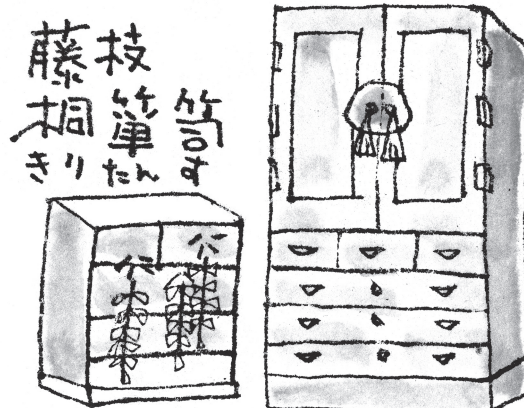 藤枝
桐箪笥
きりたんす